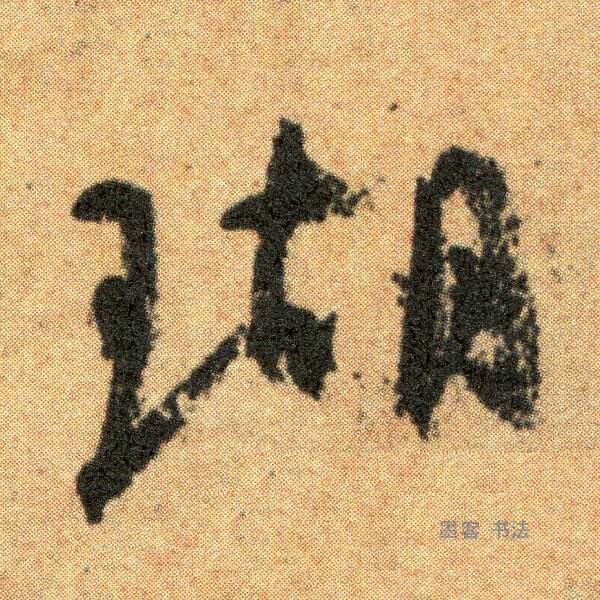 湖
墨客 书法